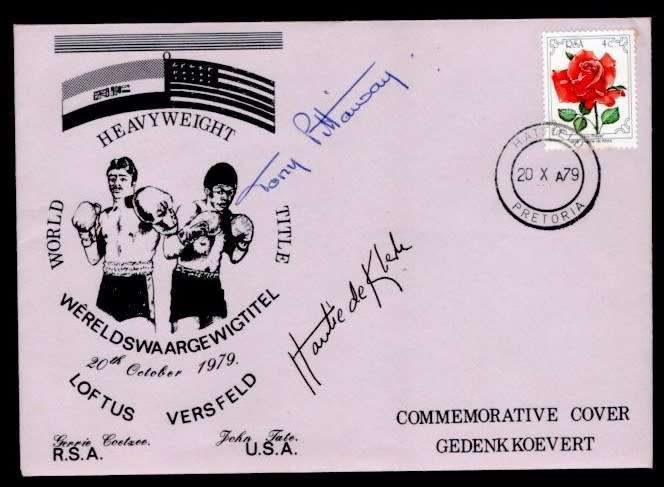 HEAVYWEIGHT
WORLD
TITLE
WÊRELDSWAARGEWIGTITEL
20th October 1979.
LOFTUS VERSFELD
Gerrie Coetzee.
R.S.A.
John Tate.
U.S.A.
Tony Pittaway
Hantie de Klerk
RSA 4c
HATFIELD
20 X A79
PRETORIA
COMMEMORATIVE COVER
GEDENKKOEVERT